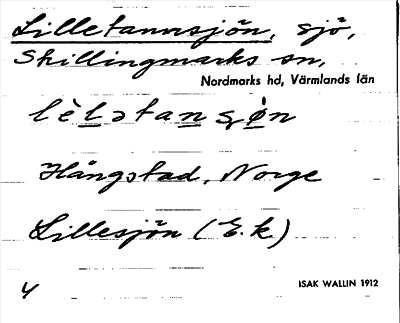 Lilletannsjön, sjö,
Skillingmarks sn,
Nordmarks hd, Värmlands län
Hångstad, Norge
Lillesjön (E.k.)
4
ISAK WALLIN 1912